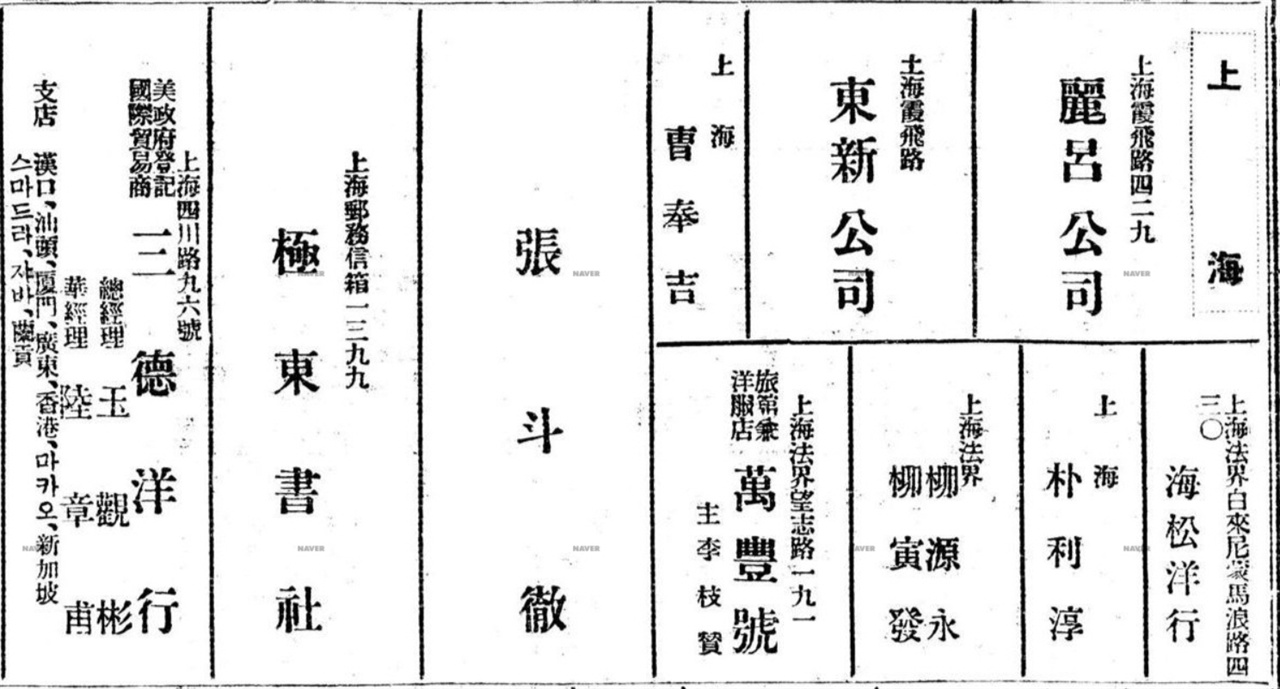 上海
上海霞飛路四二九
麗呂公司
上海霞飛路
東新公司
上海
曺奉吉
上海法界白來尼蒙馬浪路四三〇
海松洋行
上海
朴利淳
上海法界
柳源永
柳寅發
上海法界望志路一九一
旅館兼
洋服店
萬豐號
主李枝贊
張斗徹
上海郵務信箱一三九九
極東書社
上海四川路九六號
美政府登記
國際貿易商
三德洋行
總經理 玉觀彬
華經理 陸章甫
支店 漢口、汕頭、厦門、廣東、香港、마카오、新加坡
스마드라、쟈바、蘭貢
NAVER
NAVER
NAVER
NAVER
NAVER
NAVER
NAVER
NAVER